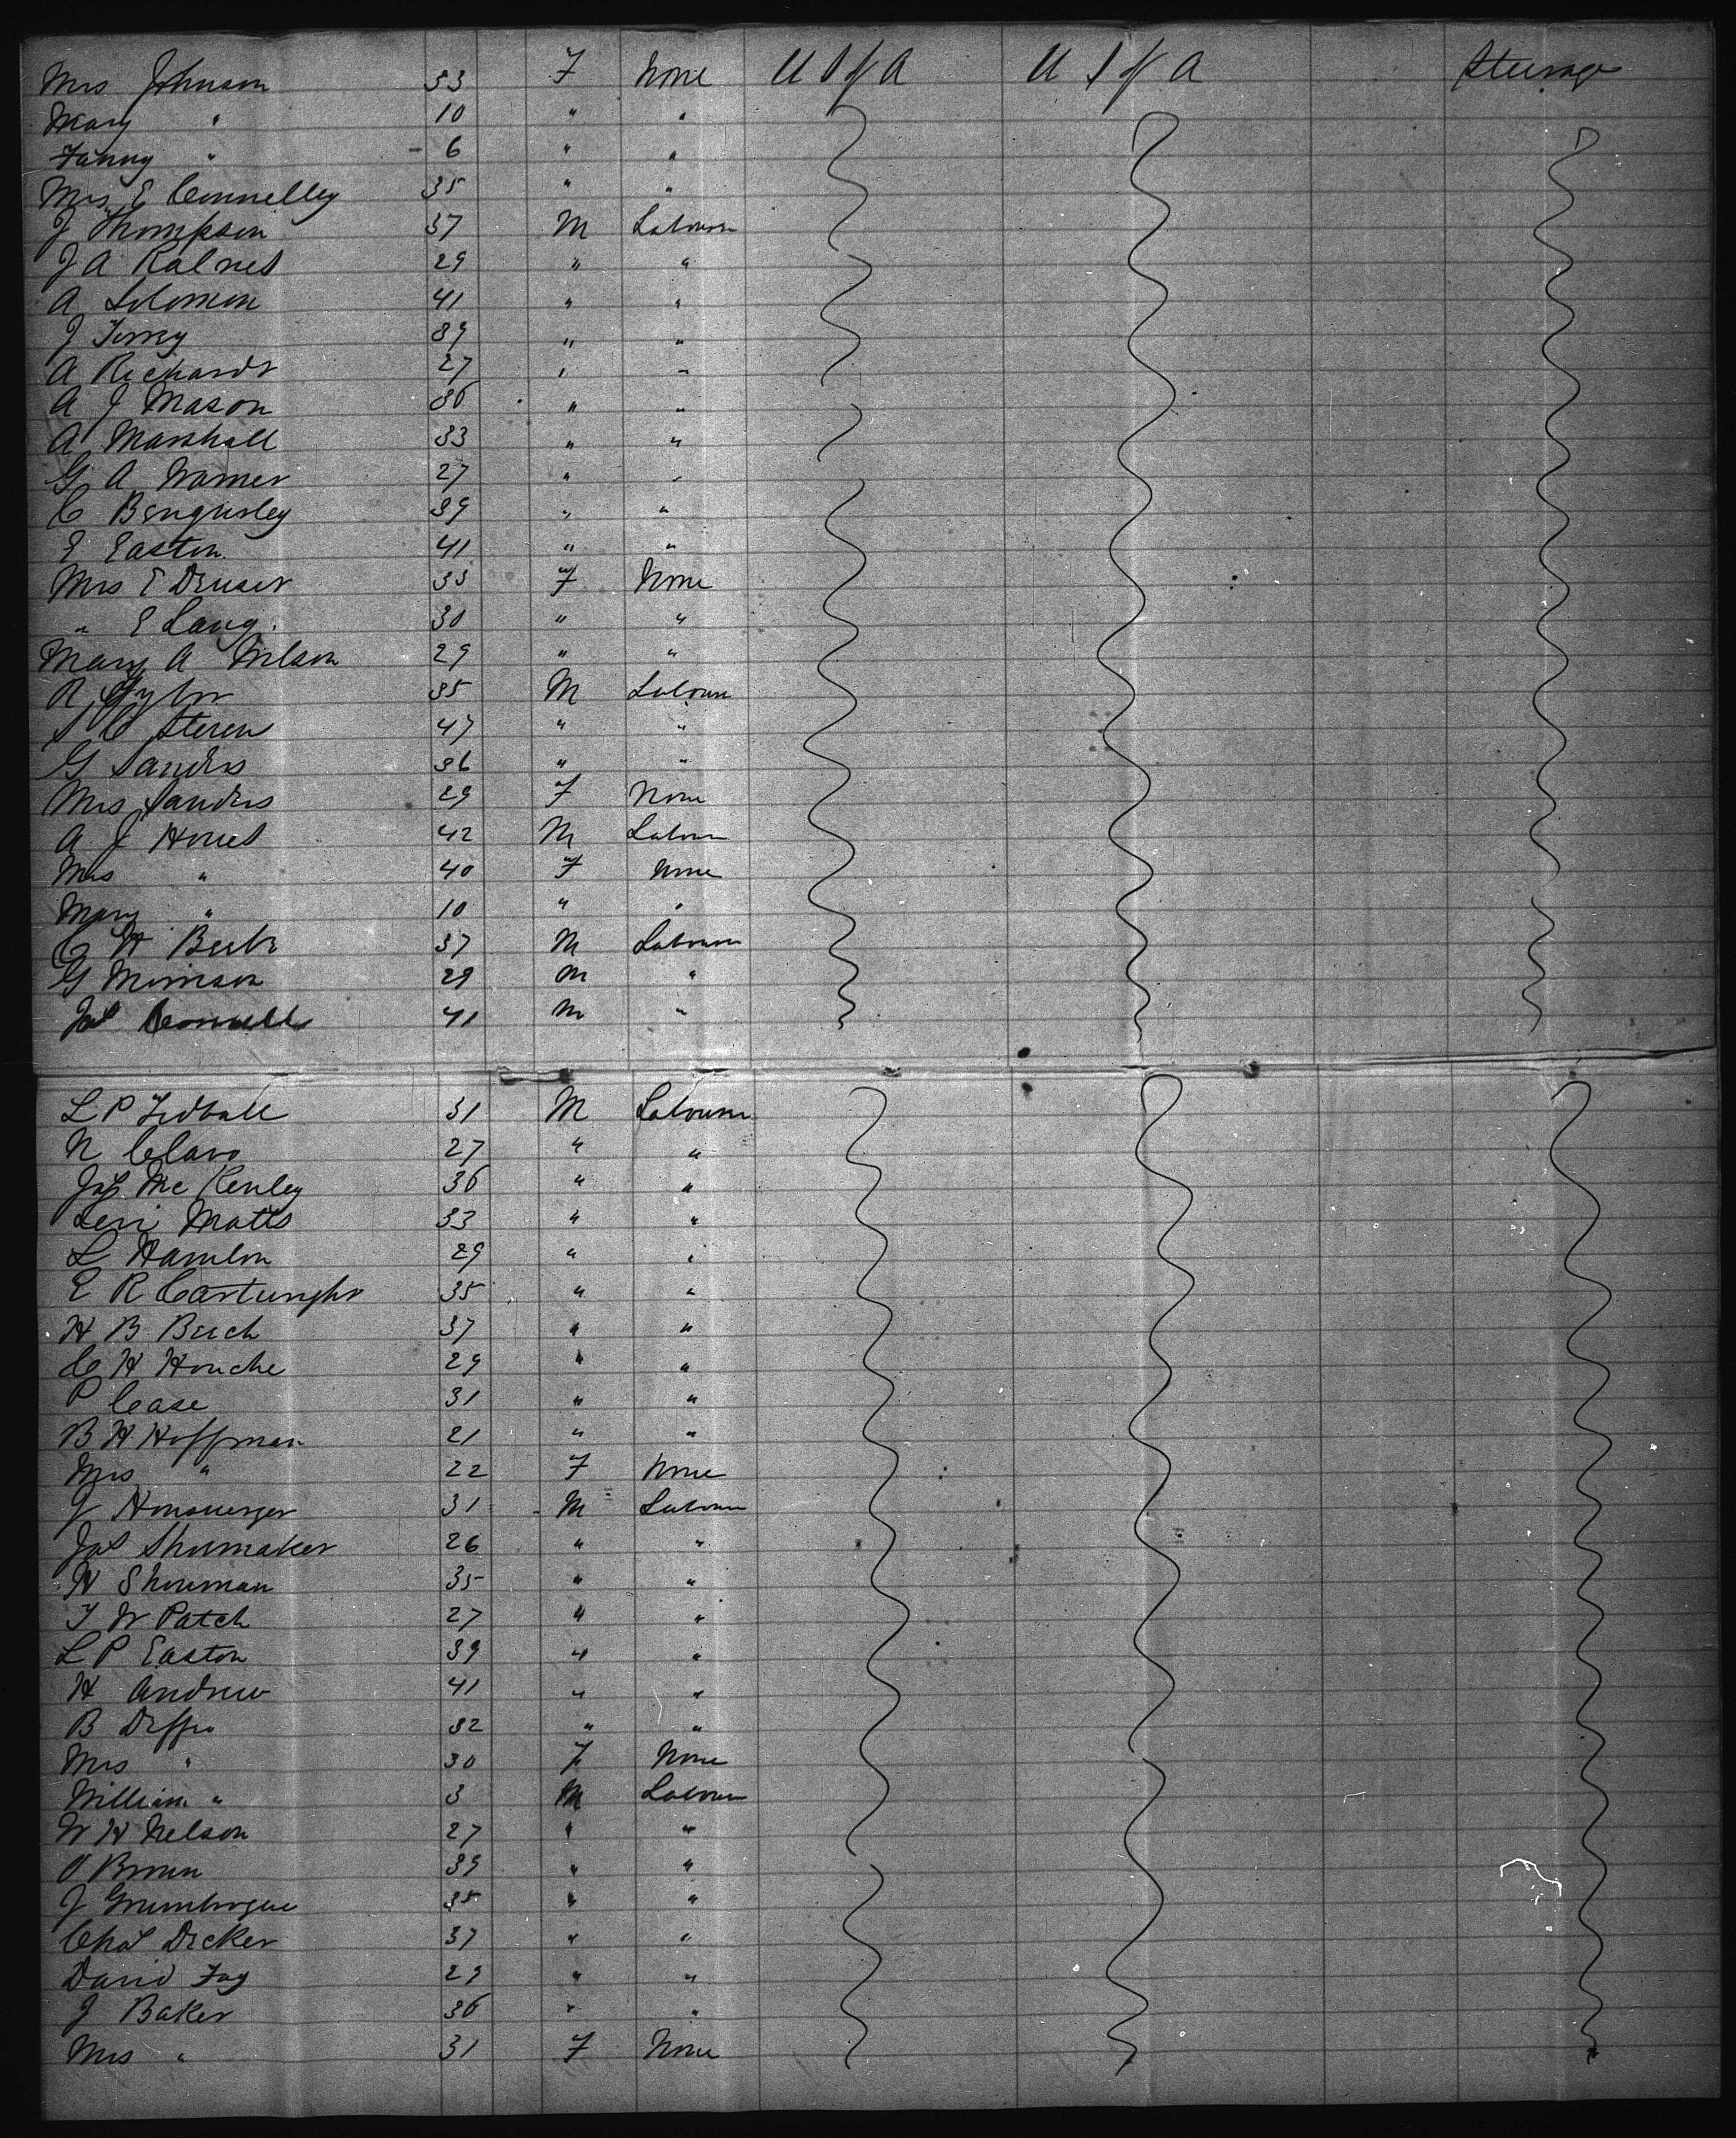 Mrs Johnson 33 F None U S of A U S of A Steerage
Mary " 10 " "
Fanny " 6 " "
Mrs E Connelley 35 " "
J Thompson 37 M Labourer
J A Ralnes 29 " "
A Solomon 41 " "
J Torrey 39 " "
A Richards 27 " "
A J Mason 36 " "
A Marshall 33 " "
G A Warner 27 " "
C Bengursley 39 " "
E Easton 41 " "
Mrs E Druser 33 F None
" E Lang 30 " "
Mary A Wilson 29 " "
R 35 M Labourer
S C Steren 47 " "
G Sanders 36 " "
Mrs Sanders 29 F None
A J Hones 42 M Labourer
Mrs " 40 F None
Mary " 10 " "
C H Beebe 37 M Labourer
G Morrison 29 M "
Jas Connells 41 M "
L P Tidball 31 M Labourer
N Claro 27 " "
Jas Mc Kenley 36 " "
Levi Matts 33 " "
L Hamlon 29 " "
E R Cartwright 35 " "
H B Beech 37 " "
C H Houche 29 " "
P Case 31 " "
B H Hoffman 21 " "
Mrs " 22 F None
J Honsuerger 31 M Labourer
Jas Shumaker 26 " "
H Showman 35 " "
T W Patch 27 " "
L P Easton 39 " "
H Andrew 41 " "
B Deffro 32 " "
Mrs " 30 F None
William " 3 M Labourer
W H Nelson 27 " "
O Brown 39 " "
J 35 " "
Chas Decker 37 " "
David Fay 29 " "
J Baker 36 " "
Mrs " 31 F None